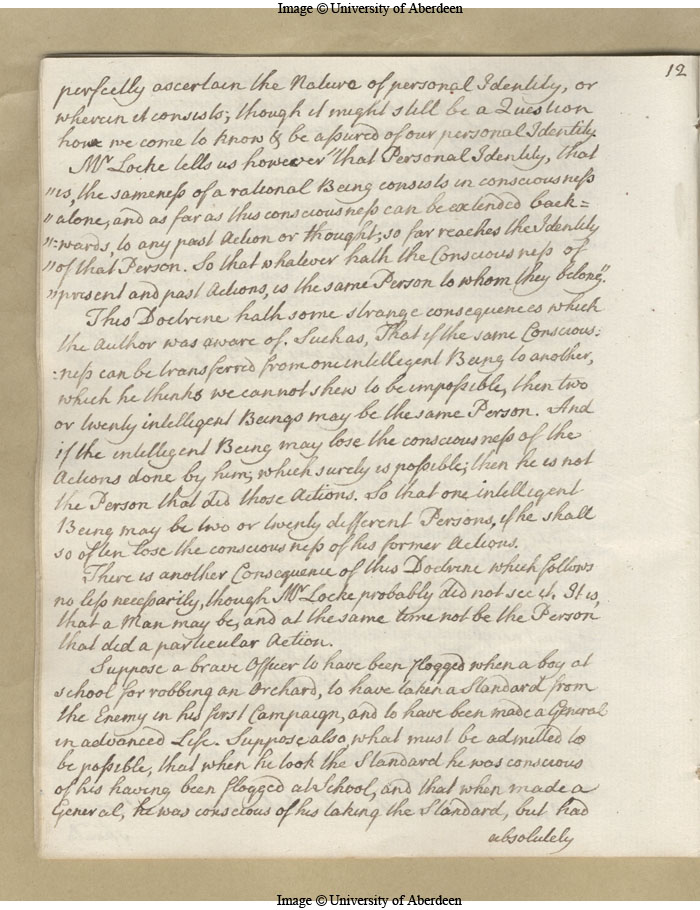 Image © University of Aberdeen
12
perfectly ascertain the Nature of personal Identity, or
wherein it consists; though it might still be a Question
how we come to know & be assured of our personal Identity.
Mr Locke tells us however "that Personal Identity, that
"is, the sameness of a rational Being consists in consciousness
"alone, and as far as this consciousness can be extended back=
"=wards, to any past Action or thought; so far reaches the Identity
"of that Person. So that whatever hath the Consciousness of
"present and past Actions, is the same Person to whom they belong".
This Doctrine hath some strange consequences which
the Author was aware of. Such as, That if the same Conscious:
:ness can be transferred from one intelligent Being to another,
which he thinks we cannot shew to be impossible, then two
or twenty intelligent Beings may be the same Person. And
if the intelligent Being may lose the consciousness of the
Actions done by him, which surely is possible; then he is not
the Person that did those Actions. So that one intelligent
Being may be two or twenty different Persons, if he shall
so often lose the consciousness of his former Actions.
There is another Consequence of this Doctrine which follows
no less necessarily, though Mr Locke probably did not see it. It is,
that a Man may be, and at the same time not be the Person
that did a particular Action.
Suppose a brave Officer to have been flogged when a boy at
school for robbing an Orchard, to have taken a Standard from
the Enemy in his first Campaign, and to have been made a General
in advanced Life. Suppose also what must be admitted to
be possible, that when he took the Standard he was conscious
of his having been flogged at School, and that when made a
General, he was conscious of his taking the Standard, but had
absolutely
Image © University of Aberdeen